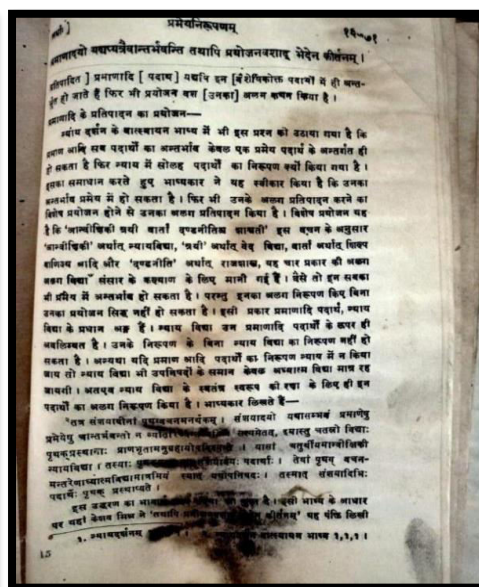 प्रमेयनिरूपणम्
प्रमाणादयो यद्यप्यत्रैवान्तर्भवन्ति तथापि प्रयोजनवशाद् भेदेन कीर्तनम् ।
प्रतिपादित ] प्रमाणादि [ पदार्थ ] यद्यपि इन [ वैशेषिकोक्त पदार्थों में ही अन्त-
र्भूत हो जाते हैं फिर भी प्रयोजन वश [ उनका ] अलग कथन किया है ।
प्रमाणादि के प्रतिपादन का प्रयोजन—
न्याय दर्शन के वात्स्यायन भाष्य में भी इस प्रश्न को उठाया गया है कि
प्रमाण आदि सब पदार्थों का अन्तर्भाव केवल एक प्रमेय पदार्थ के अन्तर्गत ही
हो सकता है फिर न्याय में सोलह पदार्थों का निरूपण क्यों किया गया है ।
इसका समाधान करते हुए भाष्यकार ने यह स्वीकार किया है कि उनका
अन्तर्भाव प्रमेय में हो सकता है । फिर भी उनके अलग प्रतिपादन करने का
विशेष प्रयोजन होने से उनका अलग प्रतिपादन किया है । विशेष प्रयोजन यह
है कि 'आन्वीक्षिकी त्रयी वार्ता दण्डनीतिश्च शाश्वती' इस वचन के अनुसार
'आन्वीक्षिकी' अर्थात् न्यायविद्या, 'त्रयी' अर्थात् वेद विद्या, वार्ता अर्थात् शिल्प
वाणिज्य आदि और 'दण्डनीति' अर्थात् राजशास्त्र, यह चार प्रकार की अलग
अलग विद्याएँ संसार के कल्याण के लिए मानी गई हैं । वैसे तो इन सबका
भी प्रमेय में अन्तर्भाव हो सकता है । परन्तु इनका अलग निरूपण किए बिना
उनका प्रयोजन सिद्ध नहीं हो सकता है । इसी प्रकार प्रमाणादि पदार्थ, न्याय
विद्या के प्रधान अङ्ग हैं । न्याय विद्या उन प्रमाणादि पदार्थों के ऊपर ही
अवलम्बित है । उनके निरूपण के बिना न्याय विद्या का निरूपण नहीं हो
सकता है । अन्यथा यदि प्रमाण आदि पदार्थों का निरूपण न्याय में न किया
जाय तो न्याय विद्या भी उपनिषदों के समान केवल अध्यात्म विद्या मात्र रह
जायगी । अतएव न्याय विद्या के स्वतंत्र स्वरूप की रक्षा के लिए ही इन
पदार्थों का अलग निरूपण किया है । भाष्यकार लिखते हैं—
तत्र संशयादीनां पृथग्वचनमनर्थकम् । संशयादयो यथासम्भवं प्रमाणेषु
प्रमेयेषु चान्तर्भवन्तो न इमास्तु चतस्रो विद्याः
पृथक्प्रस्थानाः यासां चतुर्थीयमान्वीक्षिकी
न्यायविद्या । तस्याः पदार्थाः । तेषां पृथग् वचन-
मन्तरेणाध्यात्मविद्यामात्रमियं स्यात् यथोपनिषदः । तस्मात् संशयादिभिः
पदार्थैः पृथक् प्रस्थाप्यते ।
इस उद्धरण का है । इसी भाष्य के आधार
पर यहां केशव मिश्र ने 'तथापि कीर्तनम्' यह पंक्ति लिखी
१. न्यायदर्शनम् वात्स्यायन भाष्य १,१,१ ।
15